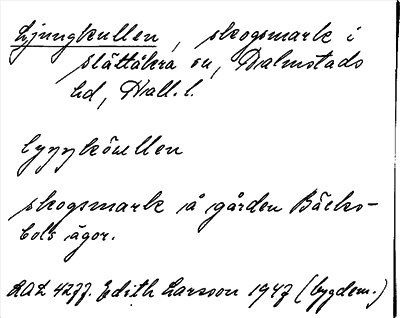 Ljungkullen, skogsmark i
Slättåkra sn, Halmstads
hd, Hall. l.
skogsmark å gården Bäcks-
bols ägor.
AAL 4277. Edith Larsson 1947 (bygdem.)